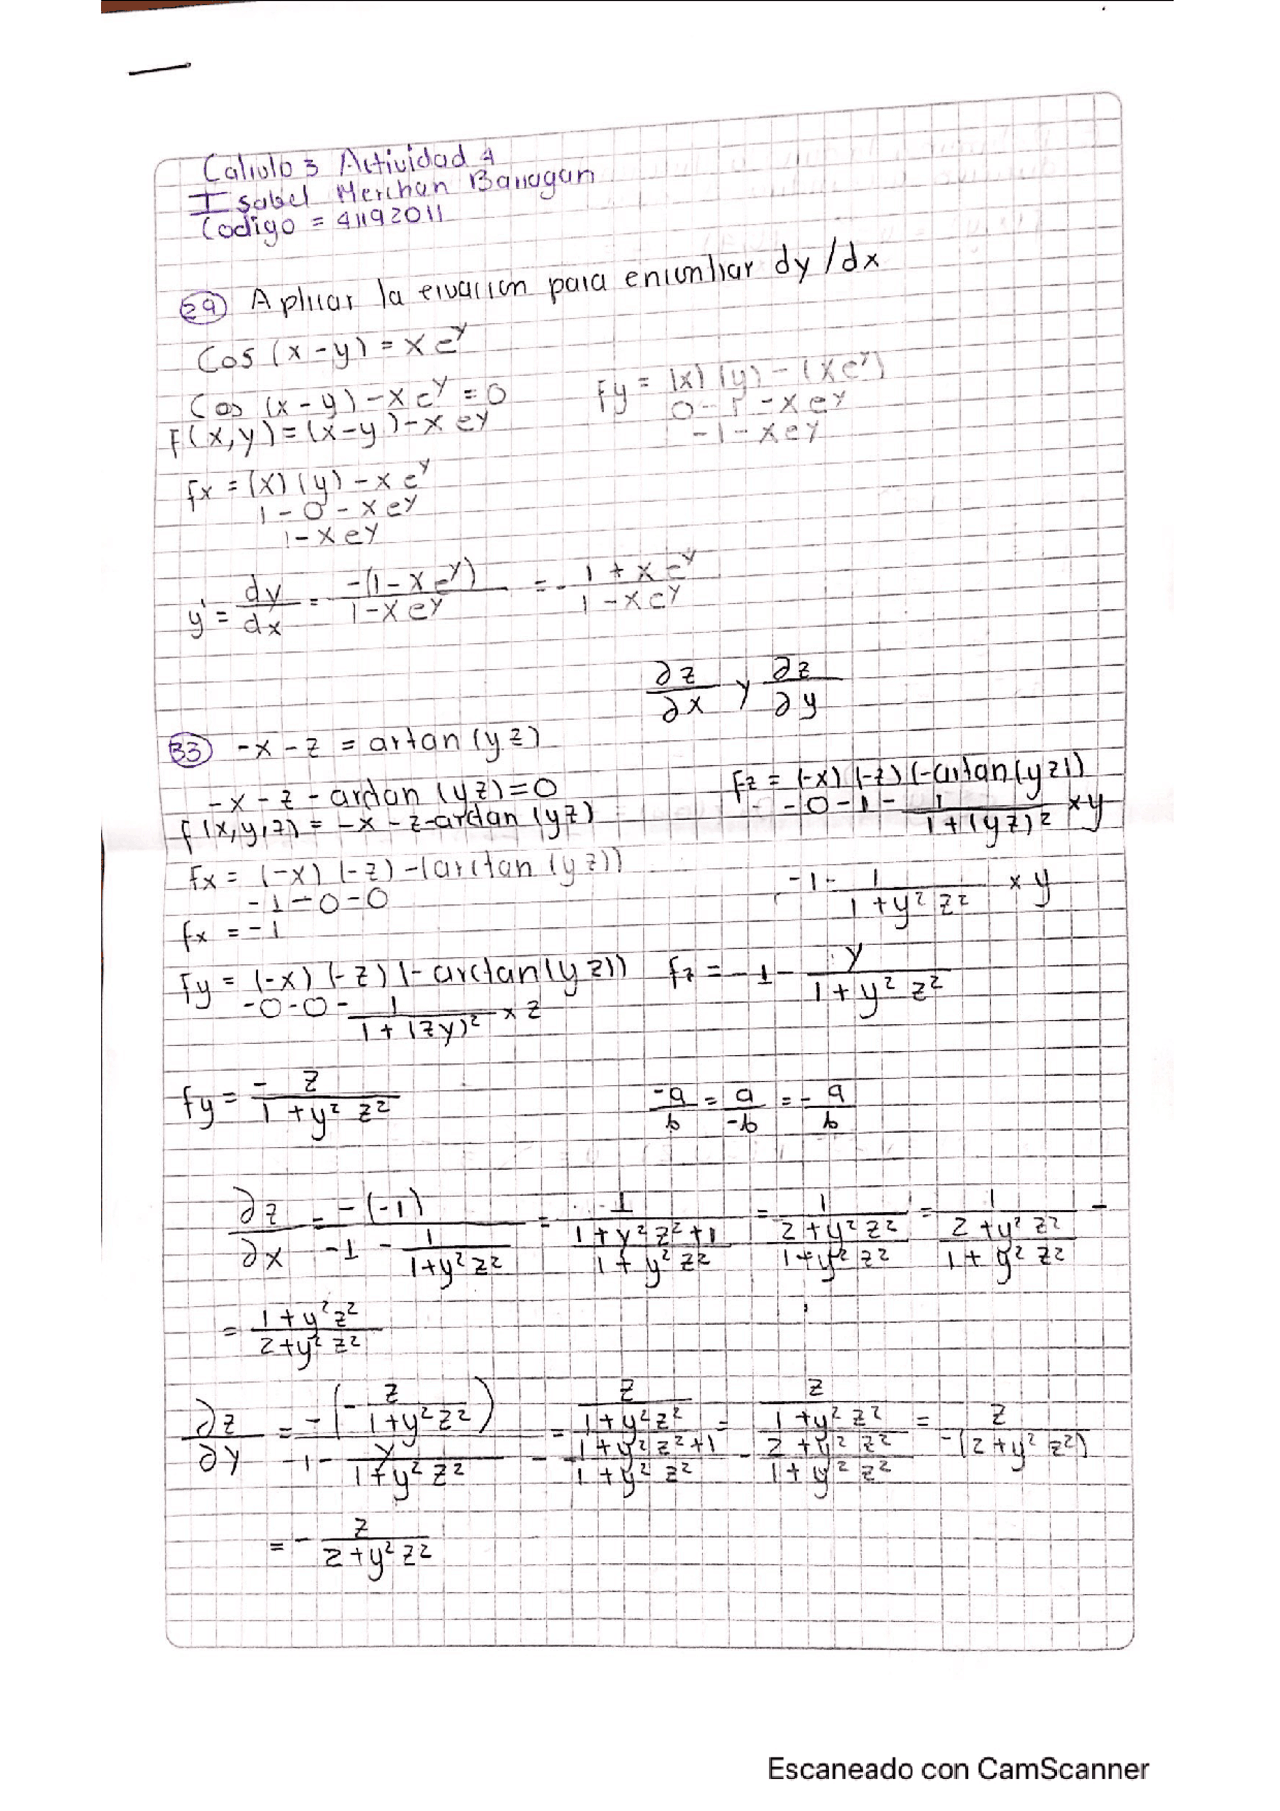 Calculo 3 Actividad 4
Isabel Merchan Barragan
Codigo = 41192011
29) Aplicar la ecuacion para encontrar dy/dx
Cos (x-y) = x e^y
Cos (x-y) - x e^y = 0
f(x,y) = (x-y) - x e^y
fx = (x) (y) - x e^y
1 - 0 - x e^y
1 - x e^y
fy = (x) (y) - (x e^y)
0 - 1 - x e^y
-1 - x e^y
y' = dy/dx = -(1 - x e^y)/(1 - x e^y) = - (1 + x e^y)/(1 - x e^y)
∂z/∂x y ∂z/∂y
33) -x - z = artan (yz)
-x - z - arctan (yz) = 0
f(x,y,z) = -x - z - arctan (yz)
fx = (-x) (-z) - (arctan (yz))
-1 - 0 - 0
fx = -1
fy = (-x) (-z) (-arctan (yz))
-0 - 0 - 1/(1 + (zy)²) × z
fy = - z/(1 + y² z²)
fz = (-x) (-z) (-artan (yz))
- 0 - 1 - 1/(1 + (yz)²) × y
-1 - 1/(1 + y² z²) × y
fz = -1 - y/(1 + y² z²)
-a/b = a/-b = - a/b
∂z/∂x = -(-1)/(-1 - 1/(1+y² z²)) = 1/((1 + y² z² + 1)/(1 + y² z²)) = 1/((2 + y² z²)/(1 + y² z²)) = 1/((2 + y² z²)/(1 + y² z²)) -
= (1 + y² z²)/(2 + y² z²)
∂z/∂y = -(- z/(1 + y² z²))/(-1 - y/(1 + y² z²)) = (z/(1 + y² z²))/(- (1 + y² z² + 1)/(1 + y² z²)) = (z/(1 + y² z²))/(- (2 + y² z²)/(1 + y² z²)) = z/(-(2 + y² z²))
= - z/(2 + y² z²)
Escaneado con CamScanner